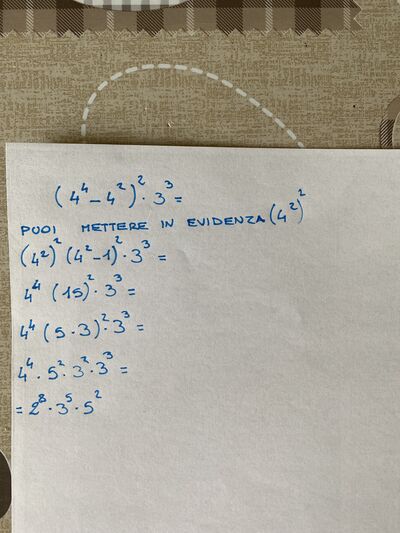 (4⁴-4²)²·3³=
PUOI METTERE IN EVIDENZA (4²)²
(4²)² (4²-1)²·3³=
4⁴ (15)²·3³=
4⁴ (5·3)²·3³=
4⁴·5²·3²·3³=
=2⁸·3⁵·5²